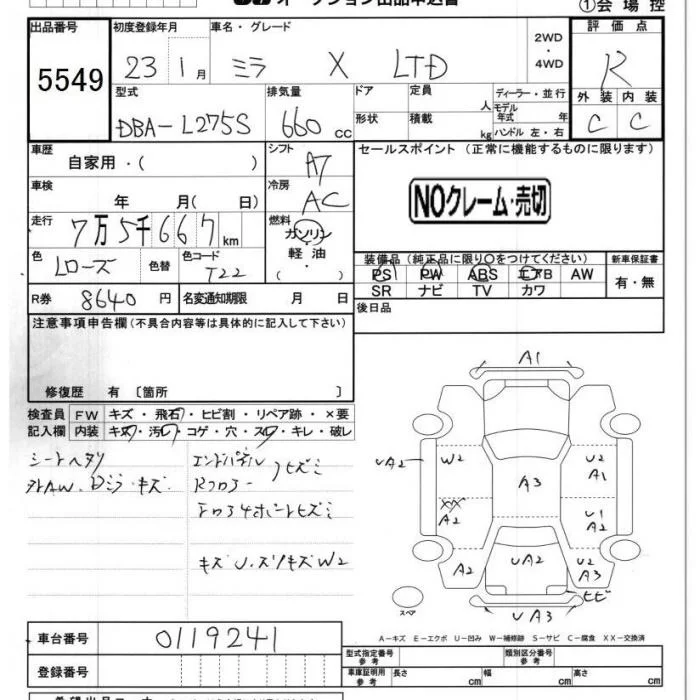 オークション出品申込書
①会場控
出品番号 初度登録年月 車名・グレード 2WD・4WD 評価点
5549 23 1月 ミラ X LTD R
型式 排気量 ドア 定員 人 ディーラー・並行 外装 内装
DBA-L275S 660cc 形状 積載 kg モデル年式 年 ハンドル 左・右 C C
車歴 シフト セールスポイント (正常に機能するものに限ります)
自家用・( ) A7
車検 冷房 NOクレーム・売切
年 月( 日) AC
走行 燃料
7万5千667km ガソリン
色 色替 色コード 軽油 装備品 (純正品に限り○をつけてください) 新車保証書
Lローズ T22 ・( ) PS PW ABS エアB AW 有・無
SR ナビ TV カワ
R券 8640円 名変通知期限 月 日 後日品
注意事項申告欄 (不具合内容等は具体的に記入して下さい)
修復歴 有 〔箇所 〕
検査員 FW キズ・飛石・ヒビ割・リペア跡・×要
記入欄 内装 キズ・汚レ・コゲ・穴・スレ・キレ・破レ
シートヘタリ エンドパネル
キズ U.スリキズ W2
A1
UA2 W2 U2 A1
A3
XX A2 U1 A2
A2 UA2 U2 A3
ヒビ
スペア UA3
A-キズ E-エクボ U-凹み W-補修跡 S-サビ C-腐食 XX-交換済
車台番号 0119241
型式指定番号 参考 類別区分番号 参考
登録番号 車庫証明用 参考 長さ cm 幅 cm 高さ cm